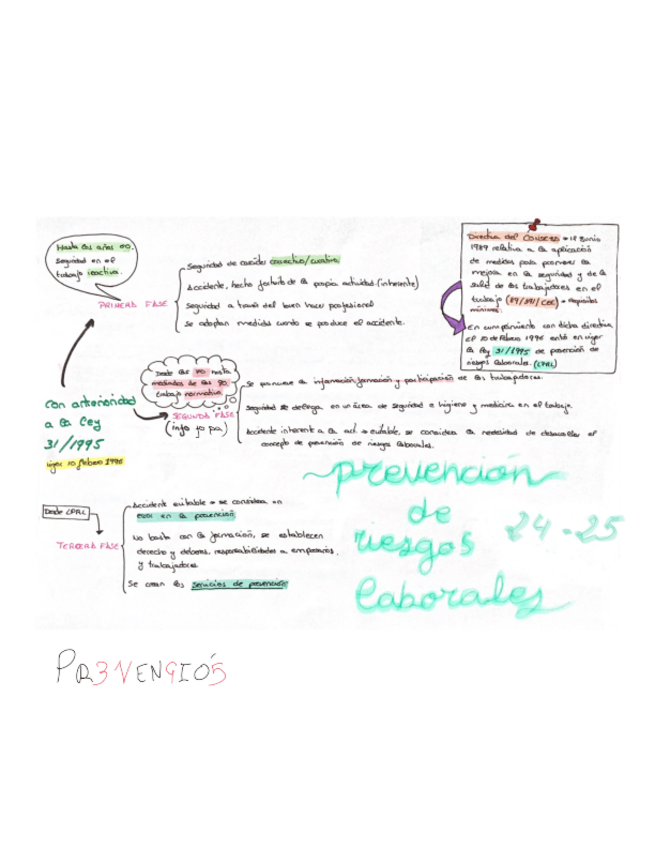 Hasta los años 70.
Seguridad en el
trabajo reactiva.
PRIMERA FASE
Seguridad de carácter correctivo/curativo
Accidente, hecho fortuito de la propia actividad (inherente)
Seguridad a través del buen hacer profesional
Se adoptan medidas cuando se produce el accidente.
Directiva del Consejo → 12 Junio
1989 relativa a la aplicación
de medidas para promover la
mejora en la seguridad y de la
salud de los trabajadores en el
trabajo (89/391/CEE) → Requisitos
mínimos.
En cumplimiento con dicha directiva,
el 10 de febrero 1996 entró en vigor
la ley 31/1995 de prevención de
riesgos laborales. (LPRL)
Con anterioridad
a la Ley
31/1995
vigor 10 febrero 1996
Desde los 70 hasta
mediados de los 90,
trabajo normativo.
SEGUNDA FASE
(info fo pa)
Se promueve la información, formación y participación de los trabajadores.
Seguridad se delega en un área de seguridad e higiene y medicina en el trabajo.
Accidente inherente a la act. → evitable, se considera la necesidad de desarrollar el
concepto de prevención de riesgos laborales.
Desde LPRL
TERCERA FASE
Accidente evitable → se considera un
error en la prevención.
No basta con la formación, se establecen
derecho y deberes, responsabilidades a empresarios,
y trabajadores
Se crean los servicios de prevención
prevención
de
riesgos
laborales
24-25
PR3VEN9IÓ5